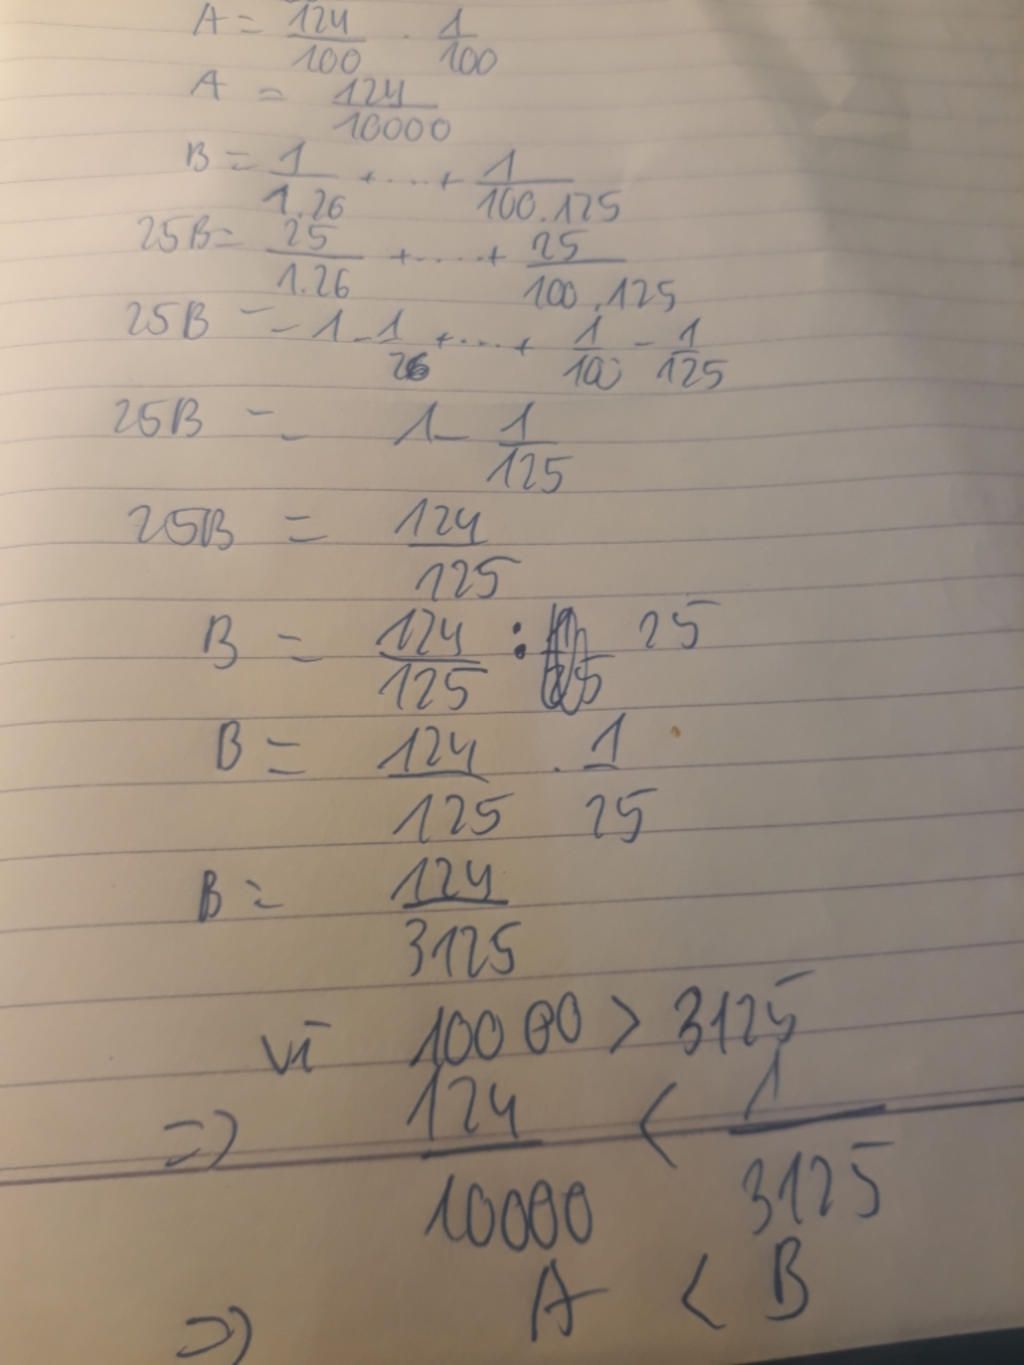 A = 124/100 . 1/100
A = 124/10000
B = 1/1.26 + ... + 1/100.125
25B = 25/1.26 + ..... + 25/100.125
25B = 1 - 1/26 + .... + 1/100 - 1/125
25B = 1 - 1/125
25B = 124/125
B = 124/125 : 25
B = 124/125 . 1/25
B = 124/3125
vì 10000 > 3125
=> 124/10000 < 1/3125
=> A < B